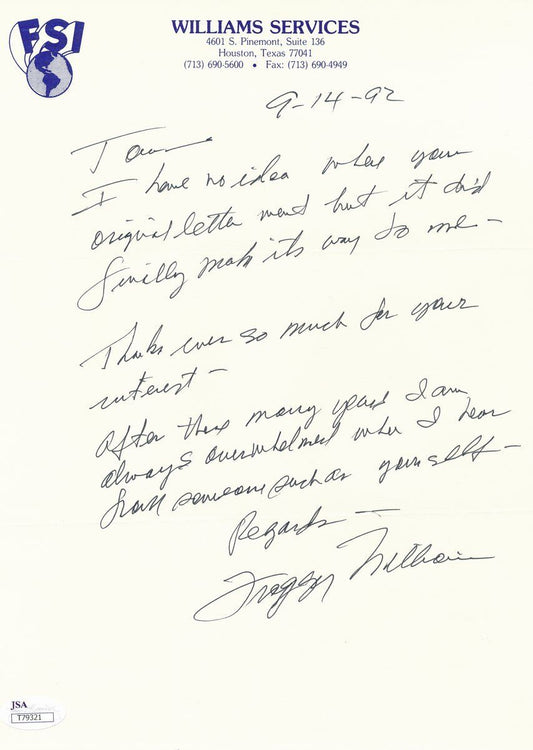 FSI
WILLIAMS SERVICES
4601 S. Pinemont, Suite 136
Houston, Texas 77041
(713) 690-5600 • Fax: (713) 690-4949
9-14-92
Tom
I have no idea where your
original letter went but it did
finally make its way to me -
Thanks ever so much for your
interest -
After these many years I am
always overwhelmed when I hear
from someone such as yourself -
Regards -
Froggy Williams
JSA
T79321